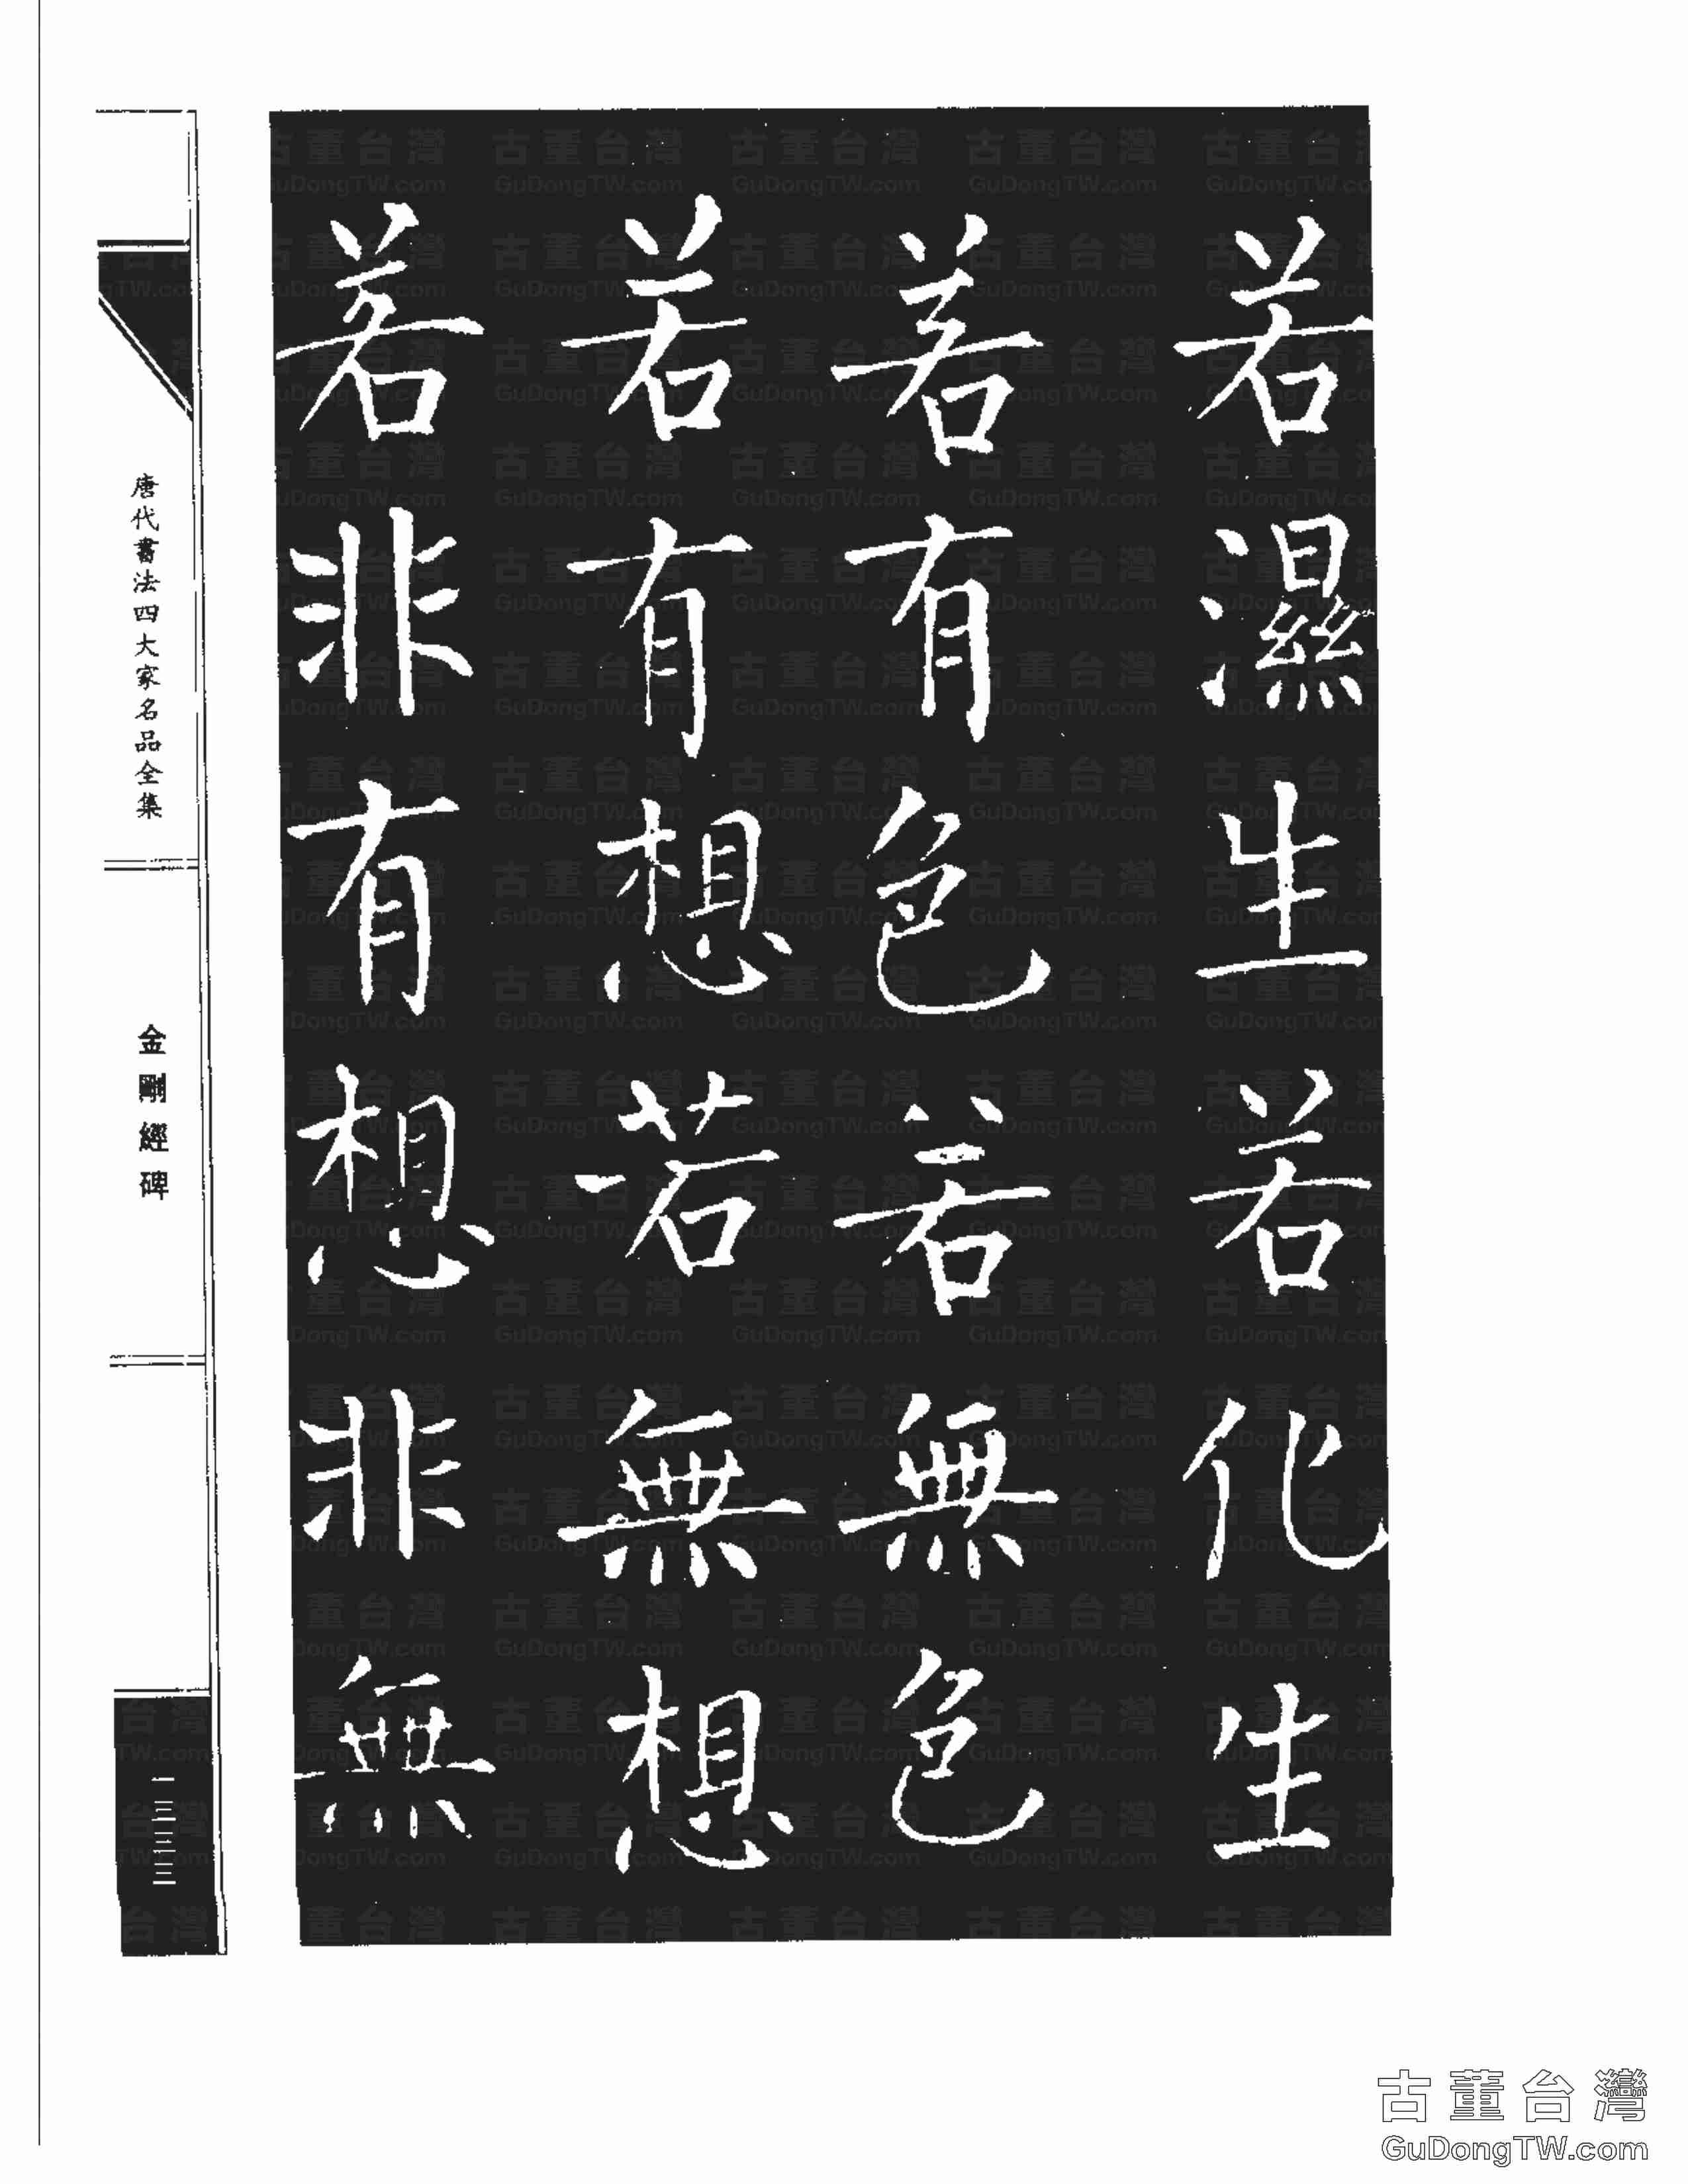 若濕生若化生
若有色若無色
若有想若無想
若非有想非無
唐代書法四大家名品全集
金剛經碑
一三三三
古董台灣
GuDongTW.com